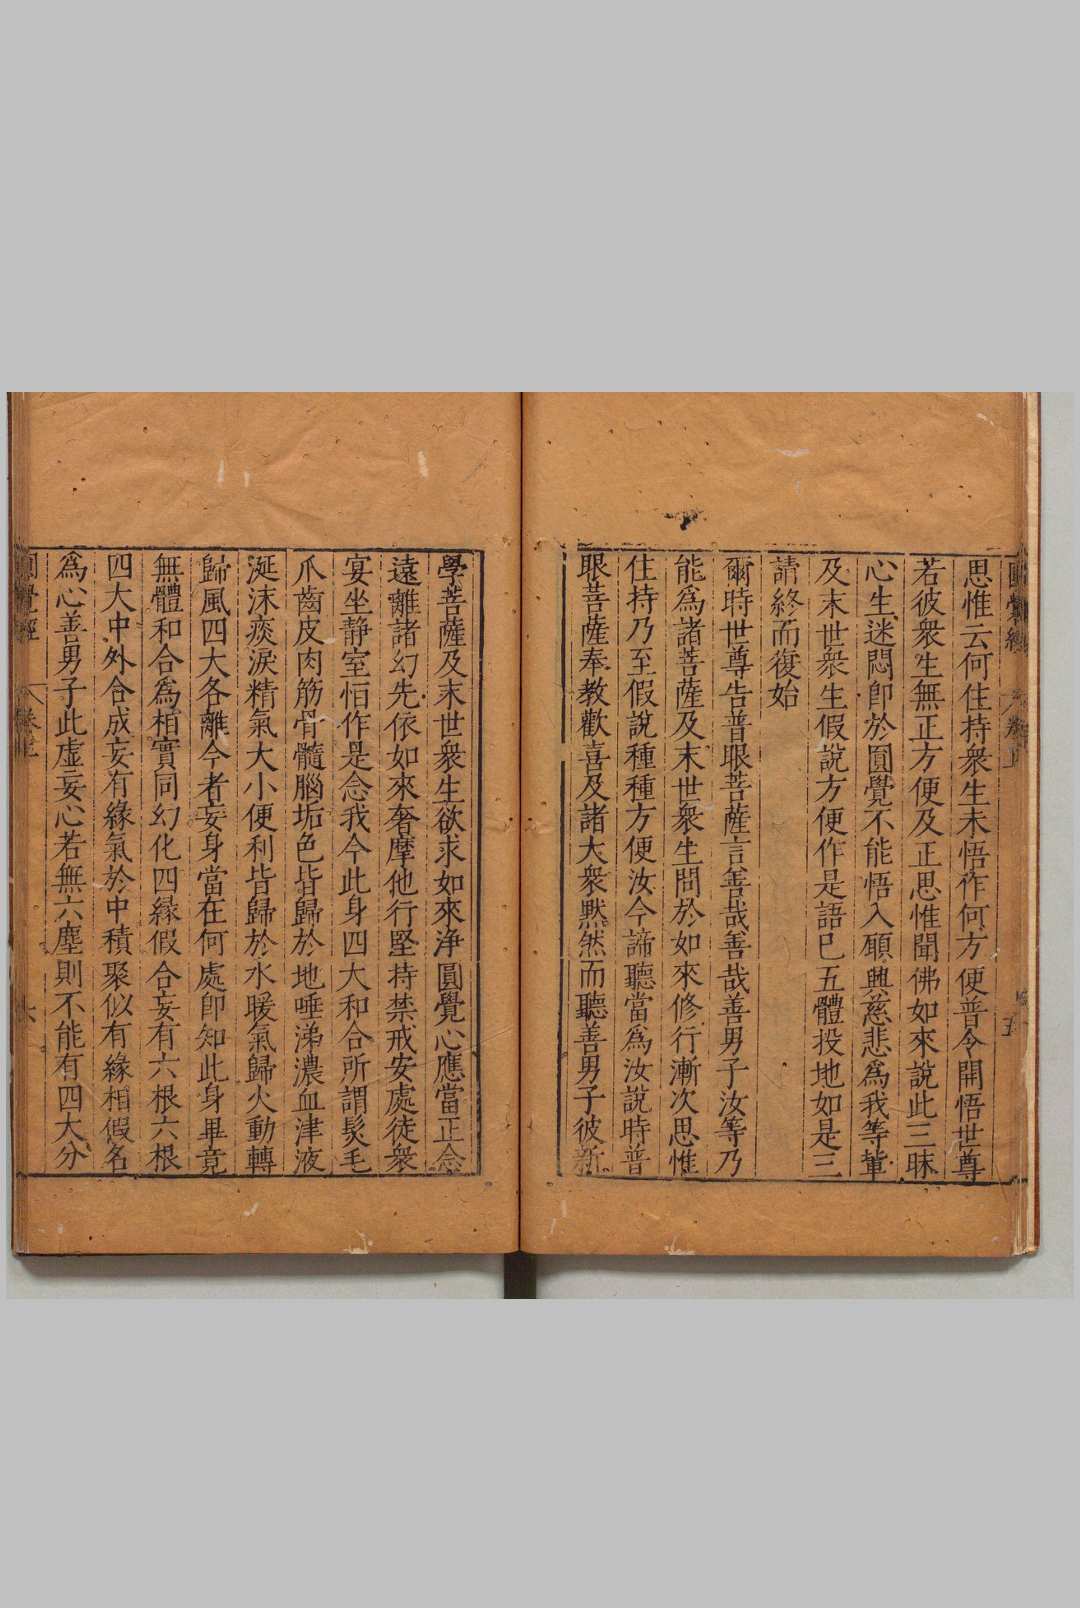 思惟云何住持衆生未悟作何方便普令開悟世尊
若彼衆生無正方便及正思惟聞佛如來說此三昧
心生迷悶卽於圓覺不能悟入願興慈悲爲我等輩
及末世衆生假說方便作是語已五體投地如是三
請終而復始
爾時世尊告普眼菩薩言善哉善哉善男子汝等乃
能爲諸菩薩及末世衆生問於如來修行漸次思惟
住持乃至假說種種方便汝今諦聽當爲汝說時普
眼菩薩奉教歡喜及諸大衆默然而聽善男子彼新
學菩薩及末世衆生欲求如來淨圓覺心應當正念
遠離諸幻先依如來奢摩他行堅持禁戒安處徒衆
宴坐静室恒作是念我今此身四大和合所謂髮毛
爪齒皮肉筋骨髓腦垢色皆歸於地唾涕濃血津液
涎沫痰淚精氣大小便利皆歸於水暖氣歸火動轉
歸風四大各離今者妄身當在何處卽知此身畢竟
無體和合爲相實同幻化四緣假合妄有六根六根
四大中外合成妄有緣氣於中積聚似有緣相假名
爲心善男子此虛妄心若無六塵則不能有四大分
圓覺經 卷上 六